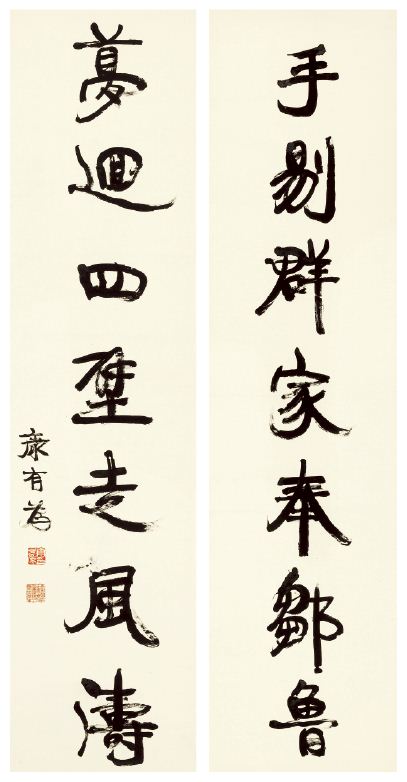 手剔群家奉鄒魯
夢迴四壁走風濤
康有為